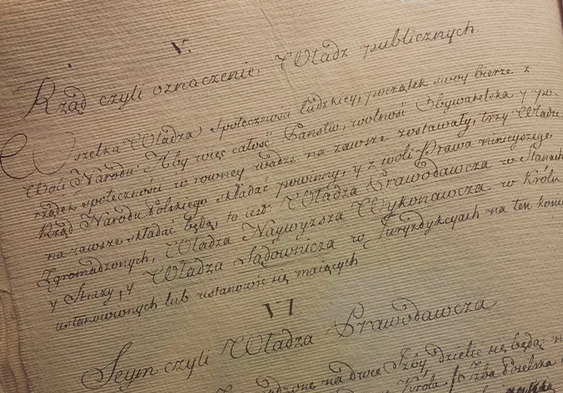 V.
Rząd czyli oznaczenie Władz publicznych.
Wszelka Władza społeczności ludzkiey, początek swoy bierze z
woli Narodu. Aby więc całość Państw, wolność Obywatelska y po-
rządek społeczności w rowney wadze na zawsze zostawały, trzy Władze
Rząd Narodu Polskiego składać powinny, y z woli Prawa ninieyszego
na zawsze składać będą, to iest: Władza Prawodawcza w Stanach
Zgromadzonych, Władza Naywyzsza Wykonawcza w Królu
y Strazy, y Władza Sądownicza w Juryzdykcyach na ten koniec
ustanowionych lub ustanowić się maiących
VI
Seym czyli Władza Prawodawcza
na dwie Izby dzielić się będą:
Króla. Izba Poselska